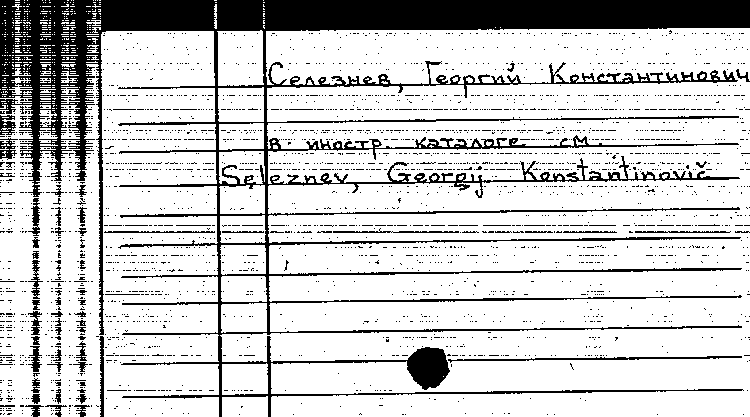 Селезнев, Георгий Константинович
в иностр. каталоге см.
Seleznev, Georgij Konstantinovič